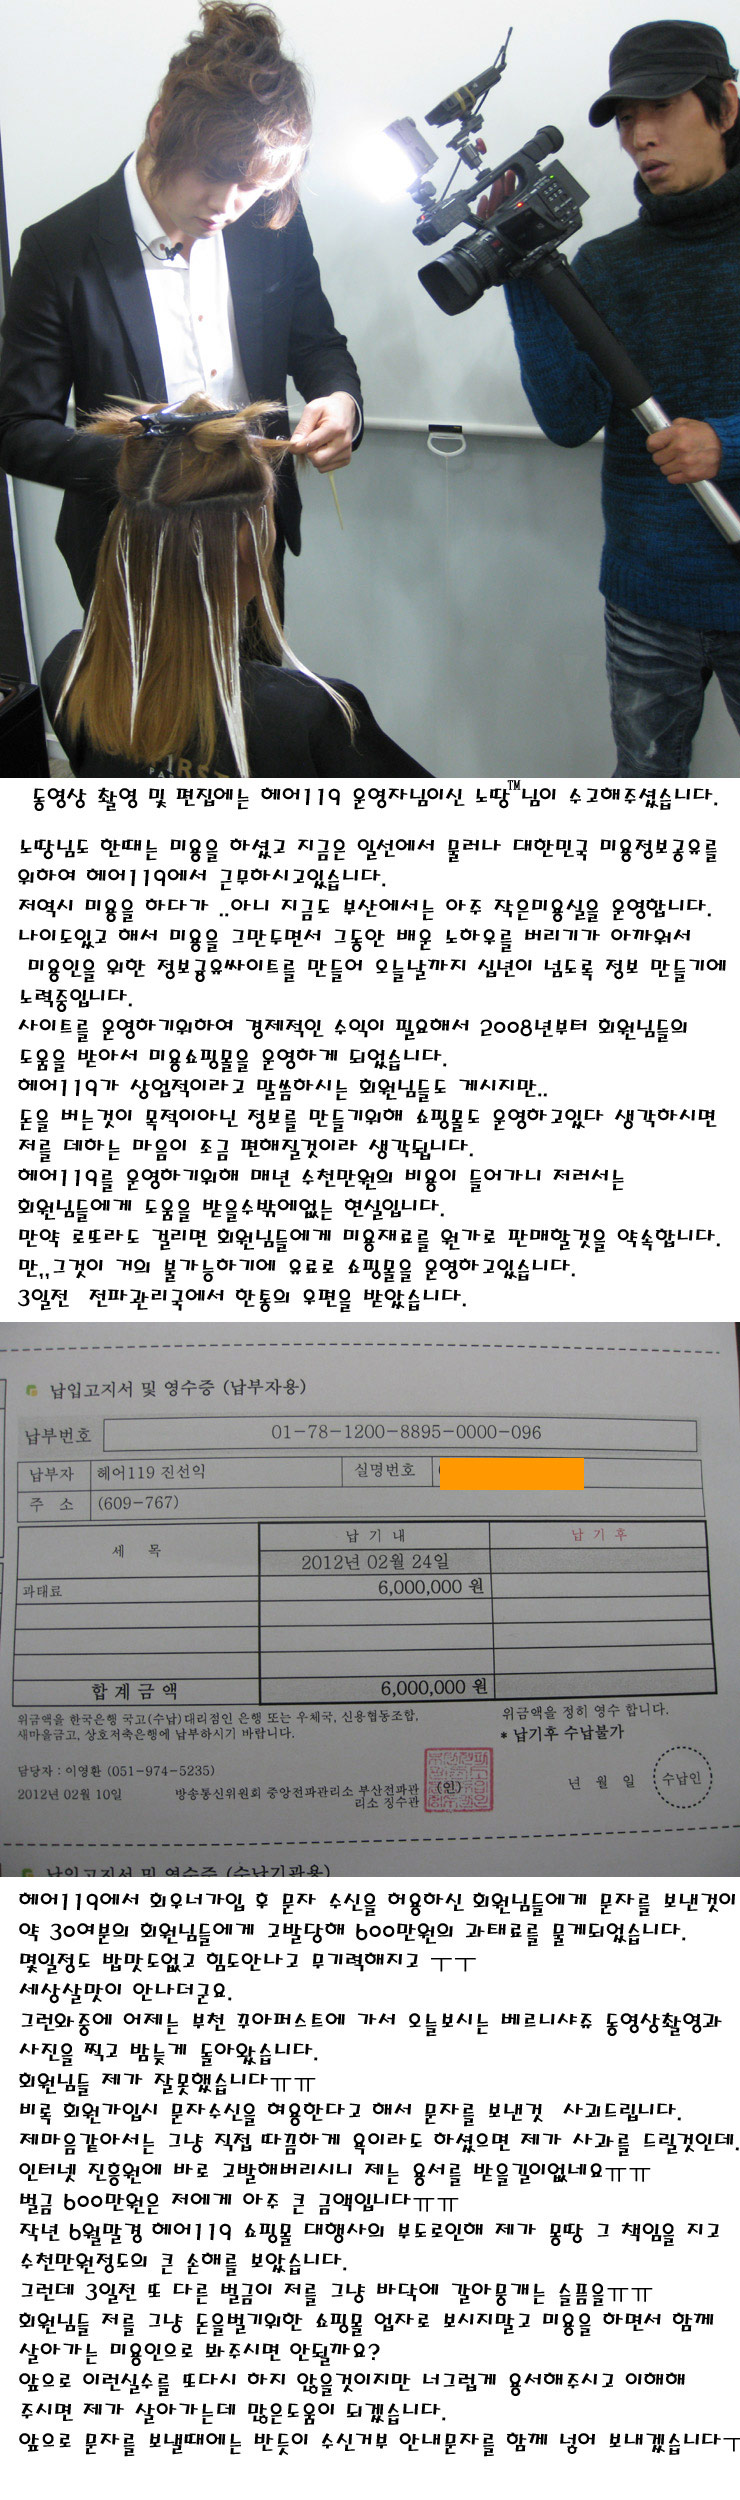 RST
PA
동영상 촬영 및 편집에는 헤어119 운영자님이신 노땅™님이 수고해주셨습니다.
노땅님도 한때는 미용을 하셨고 지금은 일선에서 물러나 대한민국 미용정보공유를
위하여 헤어119에서 근무하시고있습니다.
저역시 미용을 하다가 ..아니 지금도 부산에서는 아주 작은미용실을 운영합니다.
나이도있고 해서 미용을 그만두면서 그동안 배운 노하우를 버리기가 아까워서
미용인을 위한 정보귱유싸이트를 만들어 오늘날까지 십년이 넘도록 정보 만들기에
노력중입니다.
사이트를 운영하기위하여 경제적인 수익이 필요해서 2008년부터 회원님들의
도움을 받아서 미용쇼핑몰을 운영하게 되었습니다.
헤어119가 상업적이라고 말씀하시는 회원님들도 계시지만..
돈을 버는것이 목적이아닌 정보를 만들기위해 쇼핑몰도 운영하고있다 생각하시면
저를 데하는 마음이 조금 편해질것이라 생각됩니다.
헤어119를 운영하기위해 매년 수천만원의 비용이 들어가니 저러서는
회원님들에게 도움을 받을수밖에없는 현실입니다.
만약 로또라도 걸리면 회원님들에게 미용재료를 원가로 판매할것을 약속합니다.
만,,그것이 거의 불가능하기에 유료로 쇼핑몰을 운영하고있습니다.
3일전 전파관리국에서 한통의 우편을 받았습니다.
납입고지서 및 영수증 (납부자용)
납부번호 01-78-1200-8895-0000-096
납부자 헤어119 진선익 실명번호
주 소 (609-767)
세 목 납 기 내 납 기 후
2012년 02월 24일
과태료 6,000,000 원
합 계 금 액 6,000,000 원
위금액을 한국은행 국고(수납)대리점인 은행 또는 우체국, 신용협동조합,
새마을금고, 상호저축은행에 납부하시기 바랍니다.
위금액을 정히 영수 합니다.
* 납기후 수납불가
담당자 : 이영환 (051-974-5235)
2012년 02월 10일 방송통신위원회 중앙전파관리소 부산전파관
리소 징수관
(인)
년 월 일 수납인
납입고지서 및 영수증 (수납기관용)
헤어119에서 회우너가입 후 문자 수신을 허용하신 회원님들에게 문자를 보낸것이
약 30여분의 회원님들에게 고발당해 600만원의 과태료를 물게되었습니다.
몇일정도 밥맛도없고 힘도안나고 무기력해지고 ㅜㅜ
세상살맛이 안나더군요.
그런와중에 어제는 부천 꾸아퍼스트에 가서 오늘보시는 베르니샤쥬 동영상촬영과
사진을 찍고 밤늦게 돌아왔습니다.
회원님들 제가 잘못했습니다ㅠㅠ
비록 회원가입시 문자수신을 허용한다고 해서 문자를 보낸것 사괴드립니다.
제마음같아서는 그냥 직접 따끔하게 욕이라도 하셨으면 제가 사과를 드릴것인데.
인터넷 진흥원에 바로 고발해버리시니 제는 용서를 받을길이없네요ㅠㅠ
벌금 600만원은 저에게 아주 큰 금액입니다ㅠㅠ
작년 6월말경 헤어119 쇼핑몰 대행사의 부도로인해 제가 몽땅 그 책임을 지고
수천만원정도의 큰 손해를 보았습니다.
그런데 3일전 또 다른 벌금이 저를 그냥 바닥에 갈아뭉개는 슬픔을ㅠㅠ
회원님들 저를 그냥 돈을벌기위한 쇼핑몰 업자로 보시지말고 미용을 하면서 함께
살아가는 미용인으로 봐주시면 안될까요?
앞으로 이런실수를 또다시 하지 않을것이지만 너그럽게 용서해주시고 이해해
주시면 제가 살아가는데 많은도움이 되겠습니다.
앞으로 문자를 보낼때에는 반듯이 수신거부 안내문자를 함께 넣어 보내겠습니다ㅜ